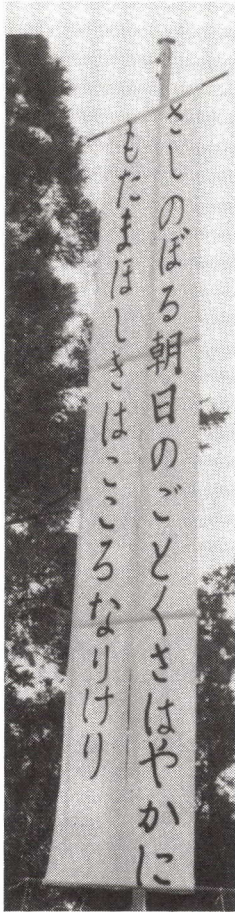 さしのぼる朝日のごとくさはやかに
もたまほしきはこころなりけり